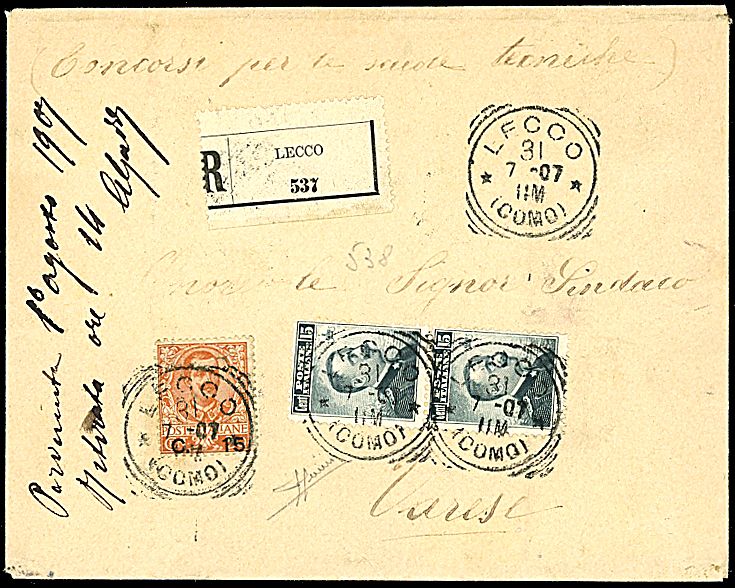 (Concorsi per le scuole tecniche)
R
LECCO
537
LECCO
31
7 -07
11M
(COMO)
538
Signor Sindaco
Varese
Pervenuta 1° agosto 1907
ore 14
POSTE ITALIANE
C. 15
LECCO
31
7 -07
11M
(COMO)
15
POSTE ITALIANE
LECCO
31
11M
(COMO)
15
POSTE ITALIANE
LECCO
31
-07
11M
(COMO)